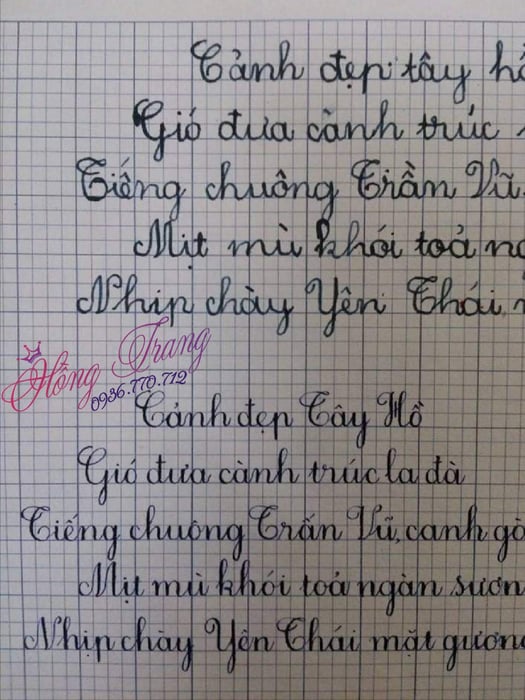 Cảnh đẹp tây
Gió đưa cành trúc
Tiếng chuông Trần Vũ
Mịt mù khói toả
Nhịp chày Yên Thái
Hồng Trang
0936.770.712
Cảnh đẹp Tây Hồ
Gió đưa cành trúc la đà
Tiếng chuông Trấn Vũ, canh gà
Mịt mù khói toả ngàn sươn
Nhịp chày Yên Thái mặt gương